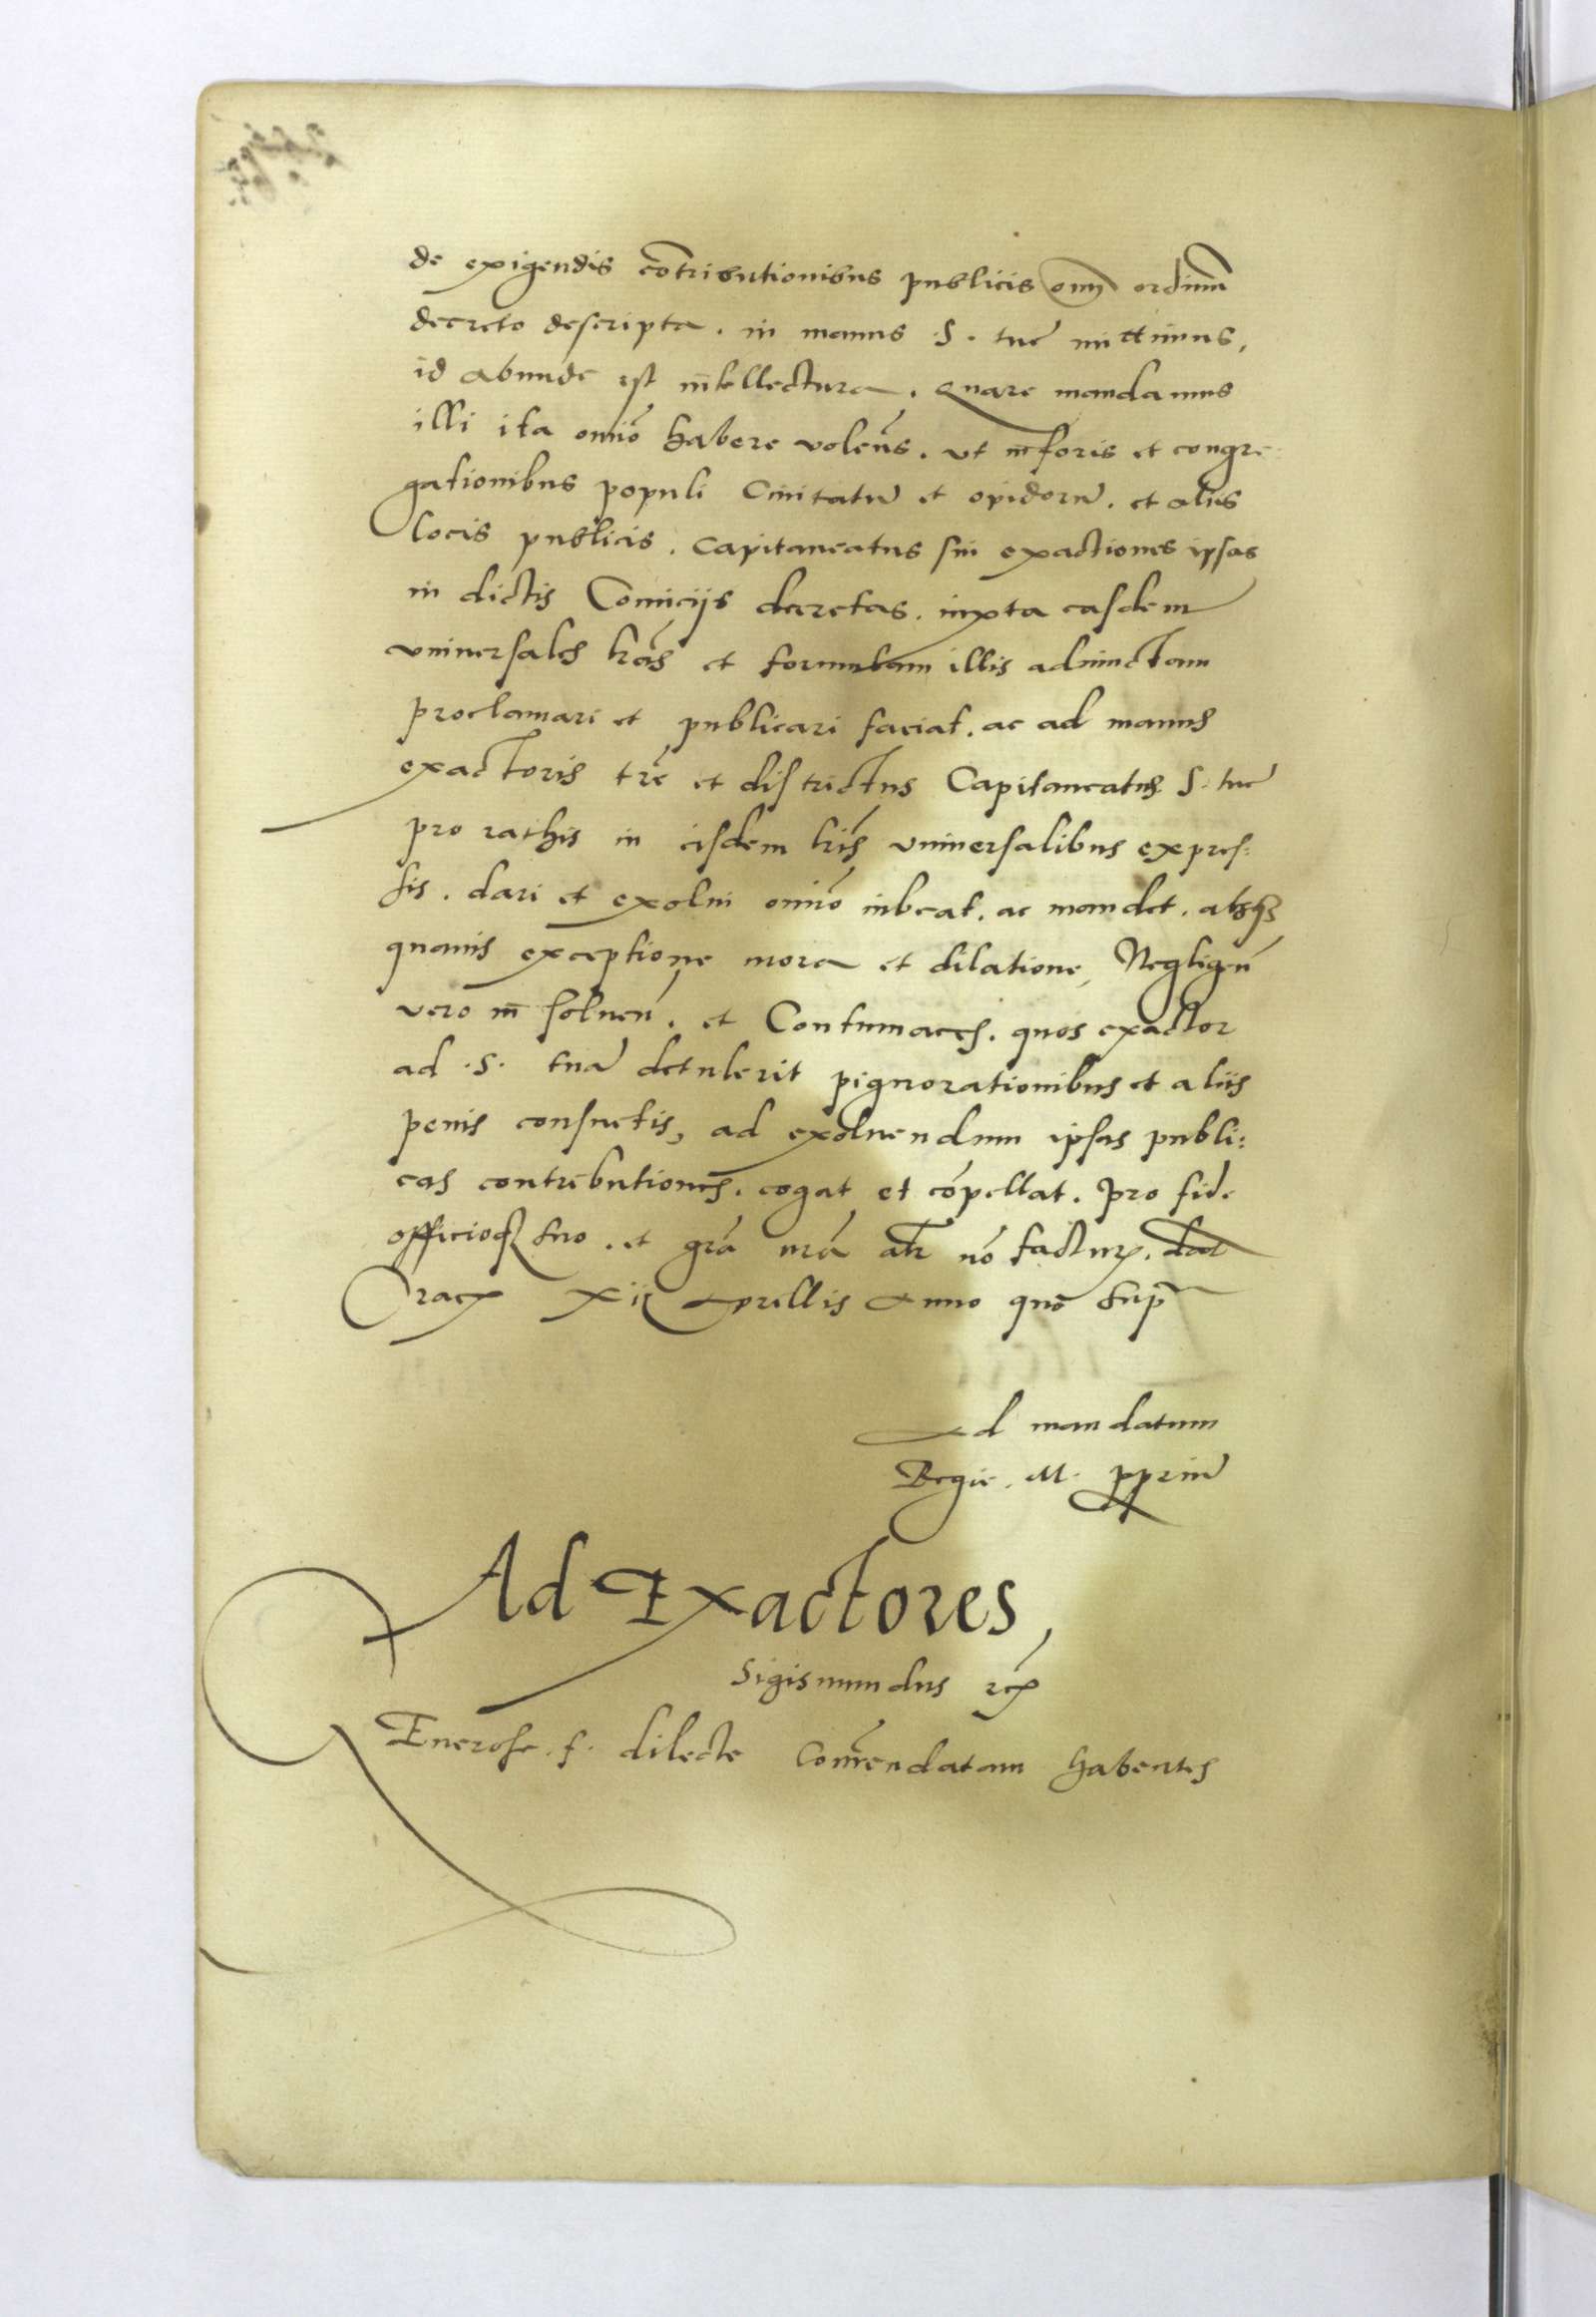 de exigendis cõtributionibus publicis omñ ordinũ
decreto descripta. in manus .S. tuę mittimus,
id abunde est intellectura. Quare mandamus
illi ita omñio habere volens̃. vt in foris et congre:
gationibus populi Ciuitatũ et opidorũ. et aliis
locis publicis. Capitaneatus sui exactiones ipsas
in dictis Comicijs decretas. iuxta easdem
vniuersales lrãs et formulam illis adiunctam
proclamari et publicari faciat. ac ad manus
exactoris trẽ et districtus Capitaneatus S. tuę
pro rathis in eisdem lrĩs vniuersalibus expres:
sis. dari et exolui omñio iubeat. ac mandet. absq3
quauis exceptione mora et dilatione, Negligeñ
vero in solueñ. et Contumaces. quos exactor
ad .S. tuã detulerit pignorationibus et aliis
penis consuetis, ad exoluendum ipsas publi:
cas contributiones. cogat et cõpellat. Pro fide
officioq3 suo. et grã nrã alr̃ nõ factur. Dat
Crac xij Aprillis Anno quo sup̃
Ad mandatum
Regie. M. ppriũ
Ad Exactores,
Sigismundus rex
Enerose. f. dilecte Com̃endatam habentes